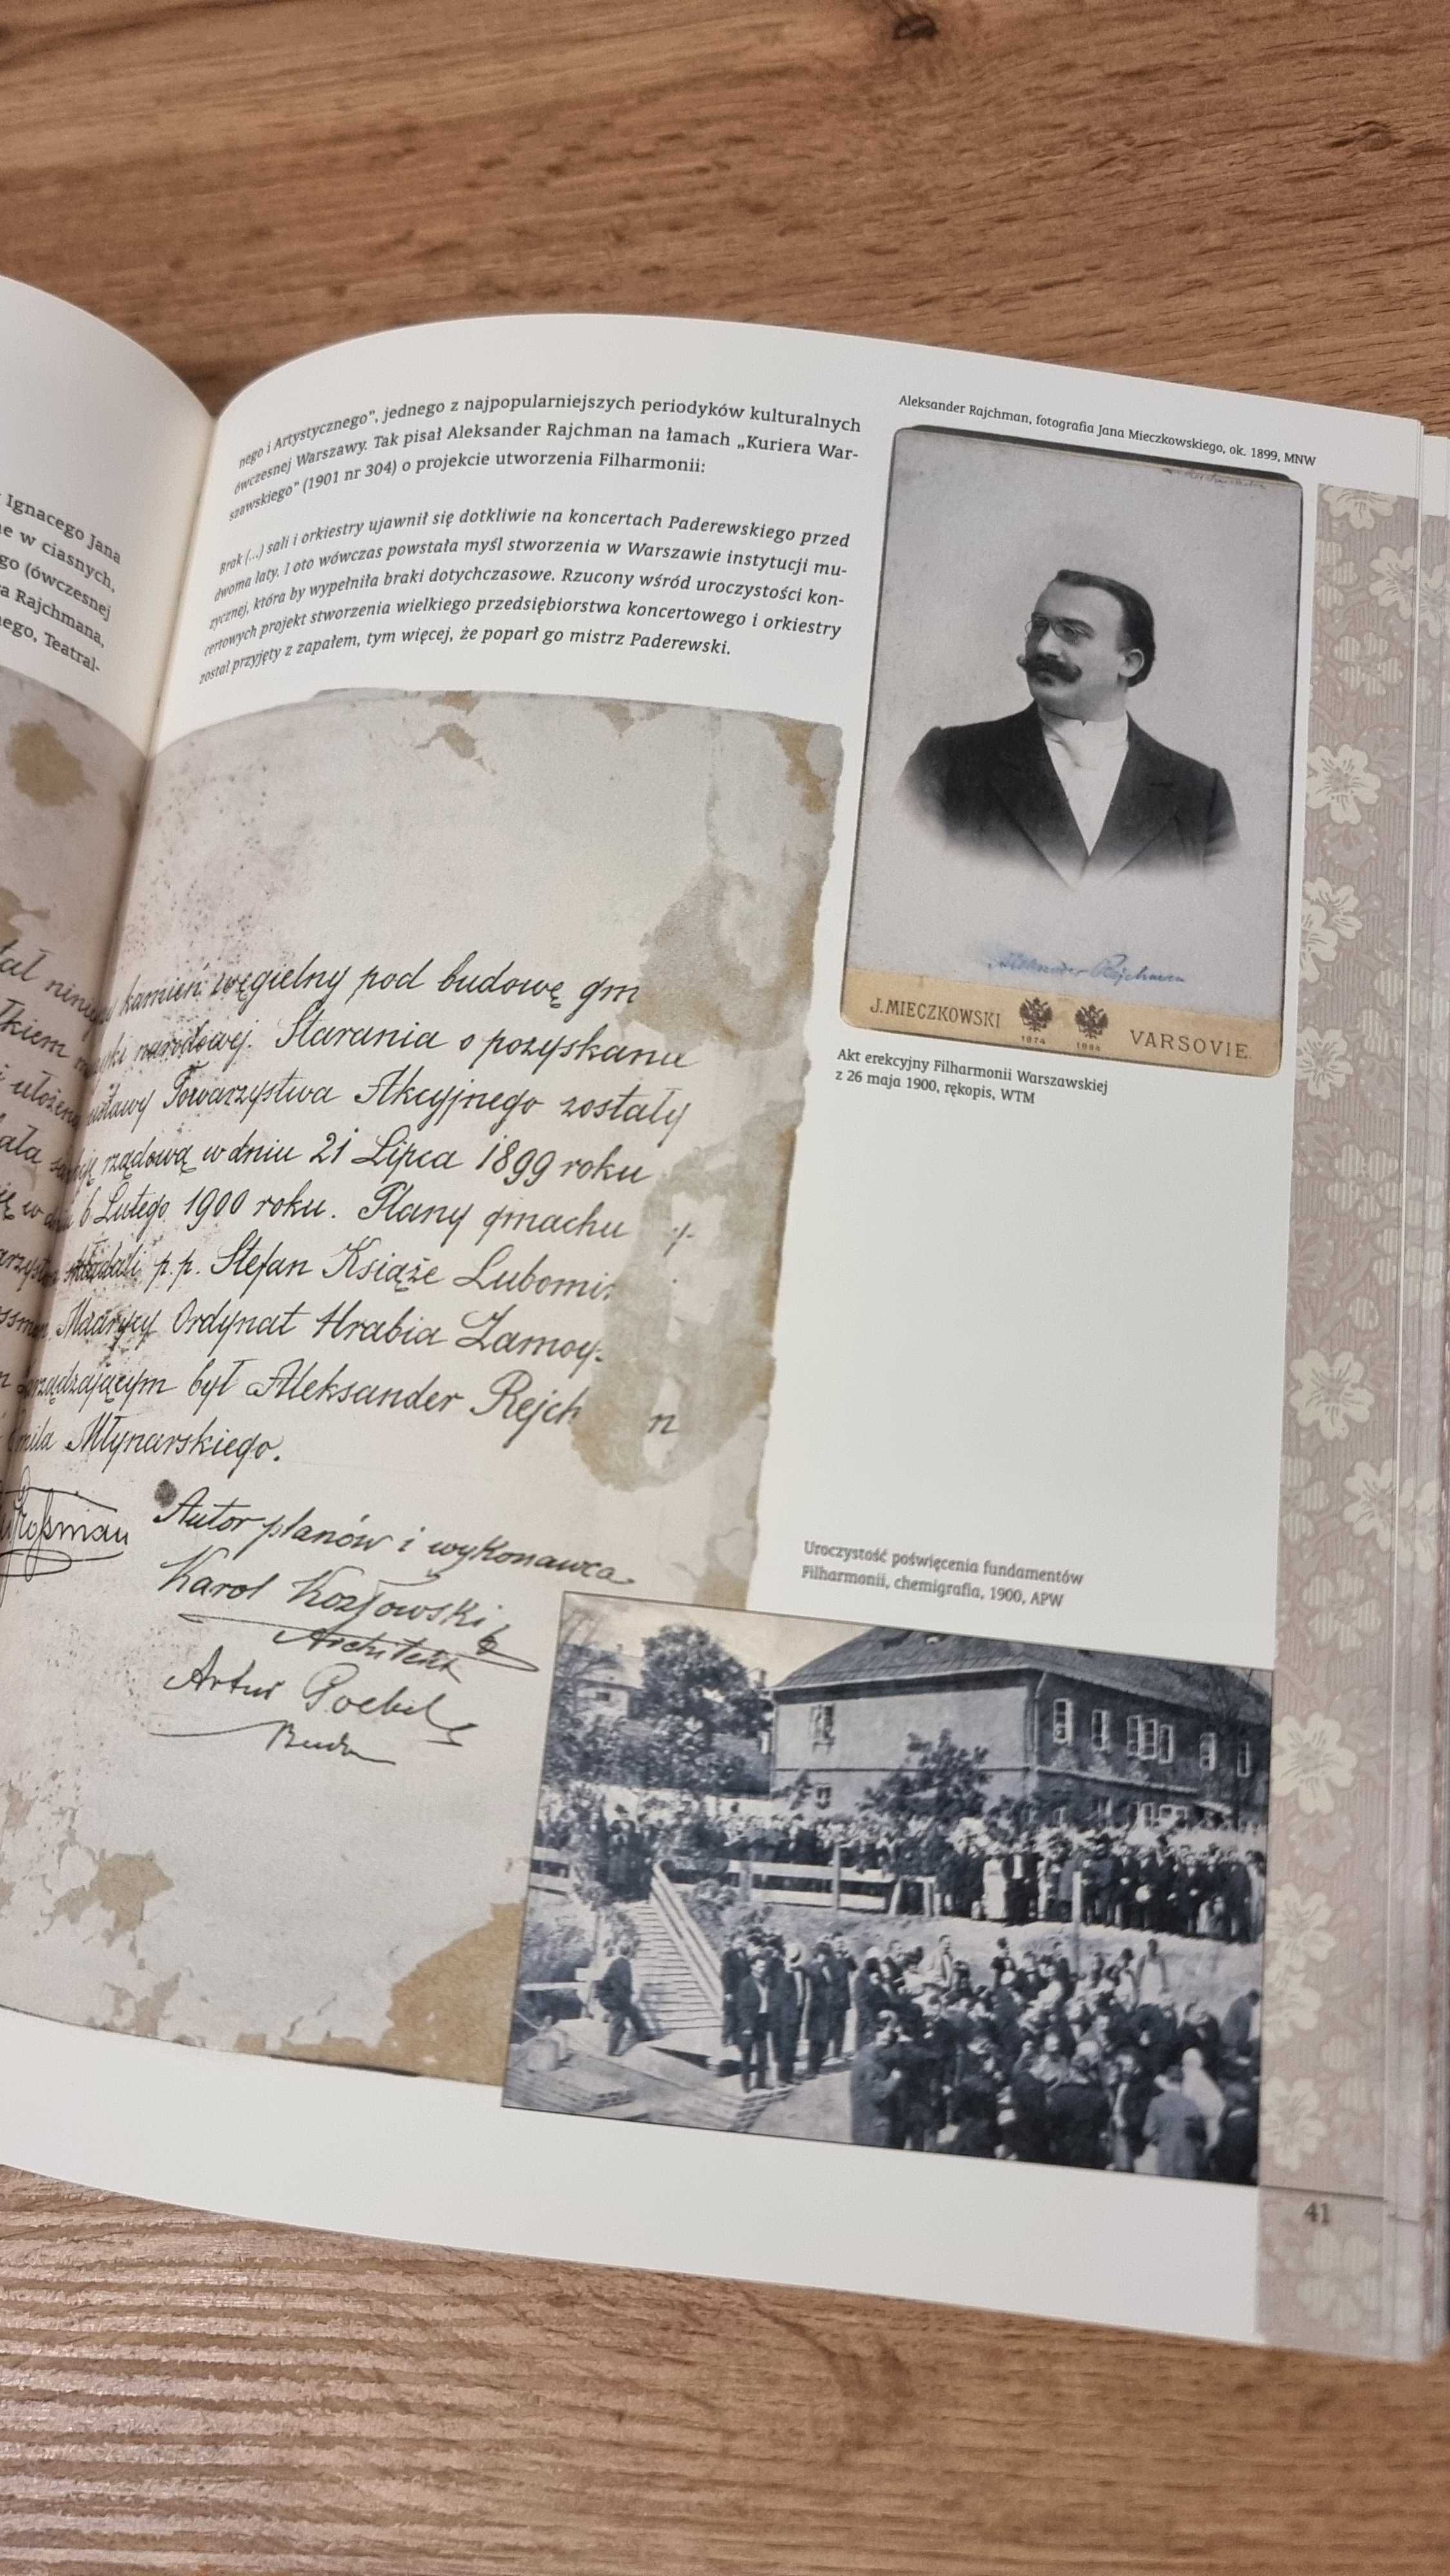 Ignacego Jana
w ciasnych,
go (ówczesnej
Rajchmana,
nego, Teatral-
nego i Artystycznego”, jednego z najpopularniejszych periodyków kulturalnych
ówczesnej Warszawy. Tak pisał Aleksander Rajchman na łamach „Kuriera War-
szawskiego” (1901 nr 304) o projekcie utworzenia Filharmonii:
Brak (...) sali i orkiestry ujawnił się dotkliwie na koncertach Paderewskiego przed
dwoma laty. I oto wówczas powstała myśl stworzenia w Warszawie instytucji mu-
zycznej, która by wypełniła braki dotychczasowe. Rzucony wśród uroczystości kon-
certowych projekt stworzenia wielkiego przedsiębiorstwa koncertowego i orkiestry
został przyjęty z zapałem, tym więcej, że poparł go mistrz Paderewski.
Aleksander Rajchman, fotografia Jana Mieczkowskiego, ok. 1899, MNW
Aleksander Rajchman
J. MIECZKOWSKI 1874 1884 VARSOVIE.
Akt erekcyjny Filharmonii Warszawskiej
z 26 maja 1900, rękopis, WTM
kamień węgielny pod budowę gm
narodowej. Starania o pozyskanie
ustawy Towarzystwa Akcyjnego zostały
rządową w dniu 21 Lipca 1899 roku
w dniu 6 Lutego 1900 roku. Plany gmachu
składali p.p. Stefan Książe Lubomir
Maurycy Ordynat Hrabia Zamoy-
zarządzającym był Aleksander Rejch n
Emila Młynarskiego.
Autor planów i wykonawca
Karol Kozłowski
Architekt
Artur Goebel
Uroczystość poświęcenia fundamentów
Filharmonii, chemigrafia, 1900, APW
41